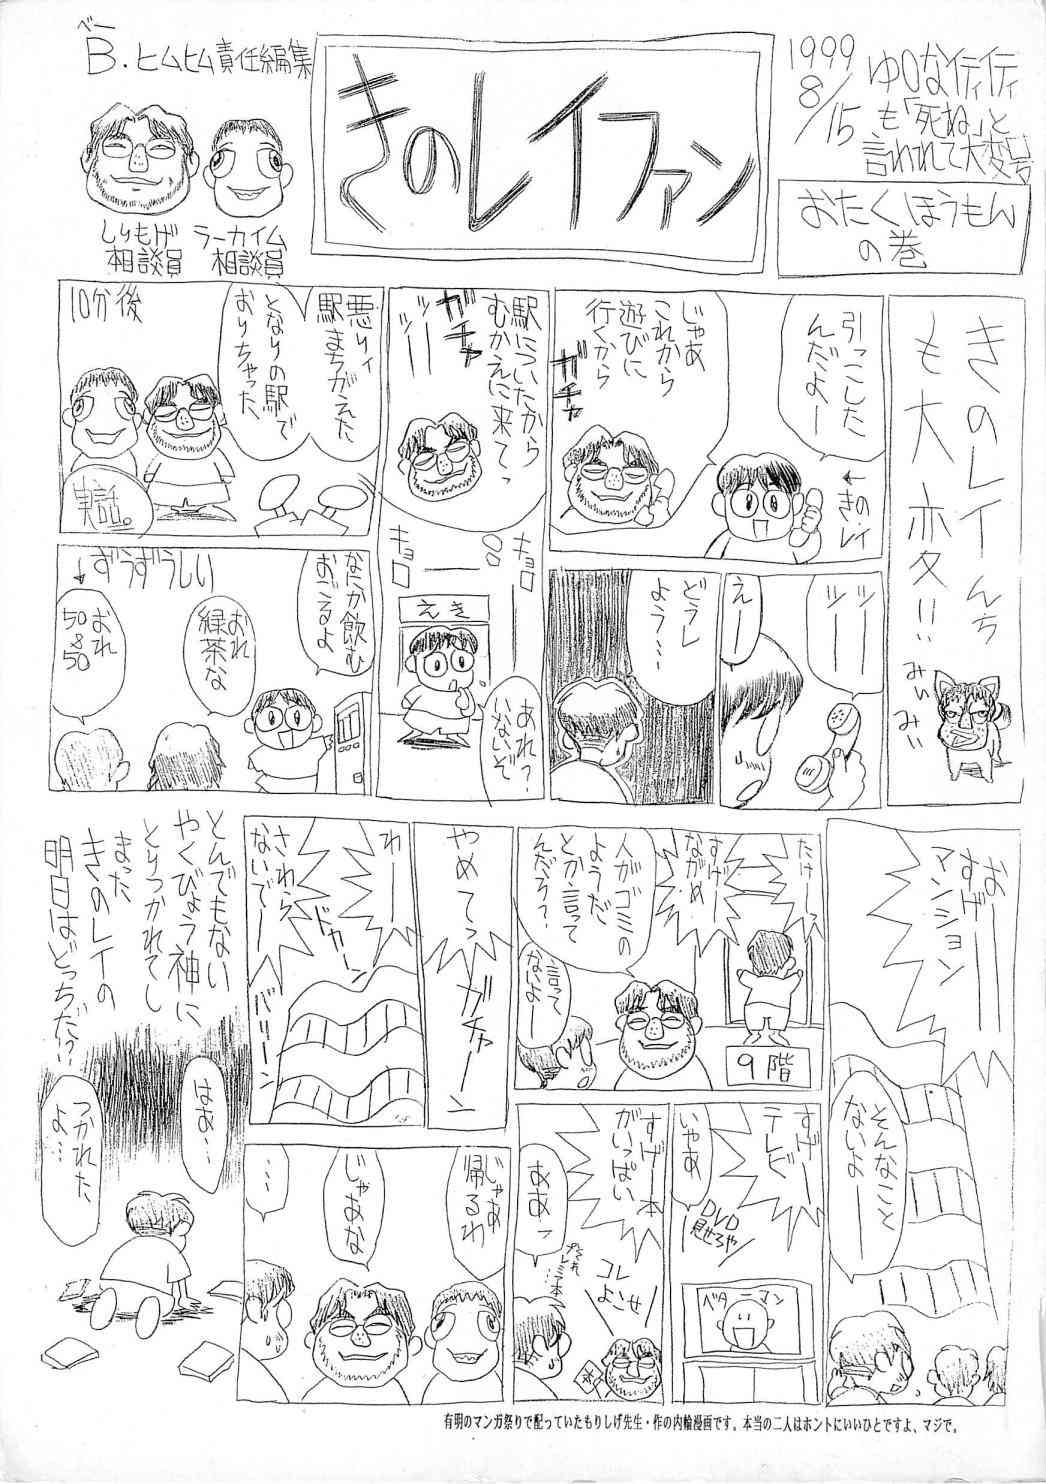 ベー
B.ヒムヒム責任編集
しりもげ
相談員
ラーカイム
相談員
きのレイファン
1999
8/15
ゆりなイティイティ
も「死ね」と
言われて大変号
おたくほうもん
の巻
きのレイんち
も大変!!
みぃみぃ
引っこした
んだよー
←きの・レイ
じゃあ
これから
遊びに
行くから
ガチャ
ツーツー
えーー
どうし
よう…
駅についたから
むかえに来てっ
ガチャ
ツーツー
キョロ
キョロ
えき
あれ?
いないぞ
10分後
悪りィ
駅まちがえた
となりの駅で
おりちゃった
実話。
なにか飲む
おごるよ
おれ
緑茶な
ずうずうしい
↓
おれ
50&50
おーー
すげー
マンション
そんなこと
ないよー
たけー
すげー
ながめ
9階
人がゴミの
ようだ
とか言って
んだろ?
言って
ないよー
すげー
テレビー
いやぁ
DVD
見せろや
ベターマン
すげー本
がいっぱい
ああっ
コレ
よこせ
やめてっ
ガチャーン
わーー
ドカーン
さわら
ないでー
バリーン
じゃあ
帰るわ
じゃあな
…
とんでもない
やくびょう神に
とりつかれてし
まった
きのレイの
明日はどっちだ!?
はぁ…
つかれた
よ…
有明のマンガ祭りで配っていたもりしげ先生・作の内輪漫画です。本当の二人はホントにいいひとですよ、マジで。